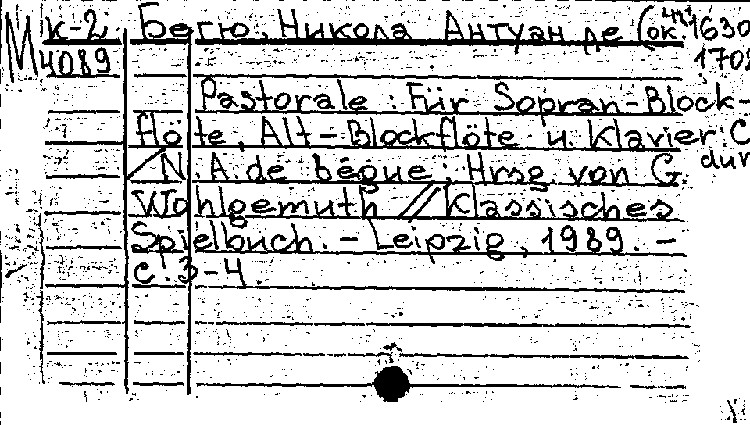 М к-2 Бегю, Никола Антуан де (ок. 1630
4089 1702
Pastorale : Für Sopran-Block-
flöte, Alt-Blockflöte u. Klavier: C
dur
/ N. A. de bégue ; Hrsg. von G.
Wohlgemuth // Klassisches
Spielbuch. - Leipzig, 1989. -
с. 3-4.